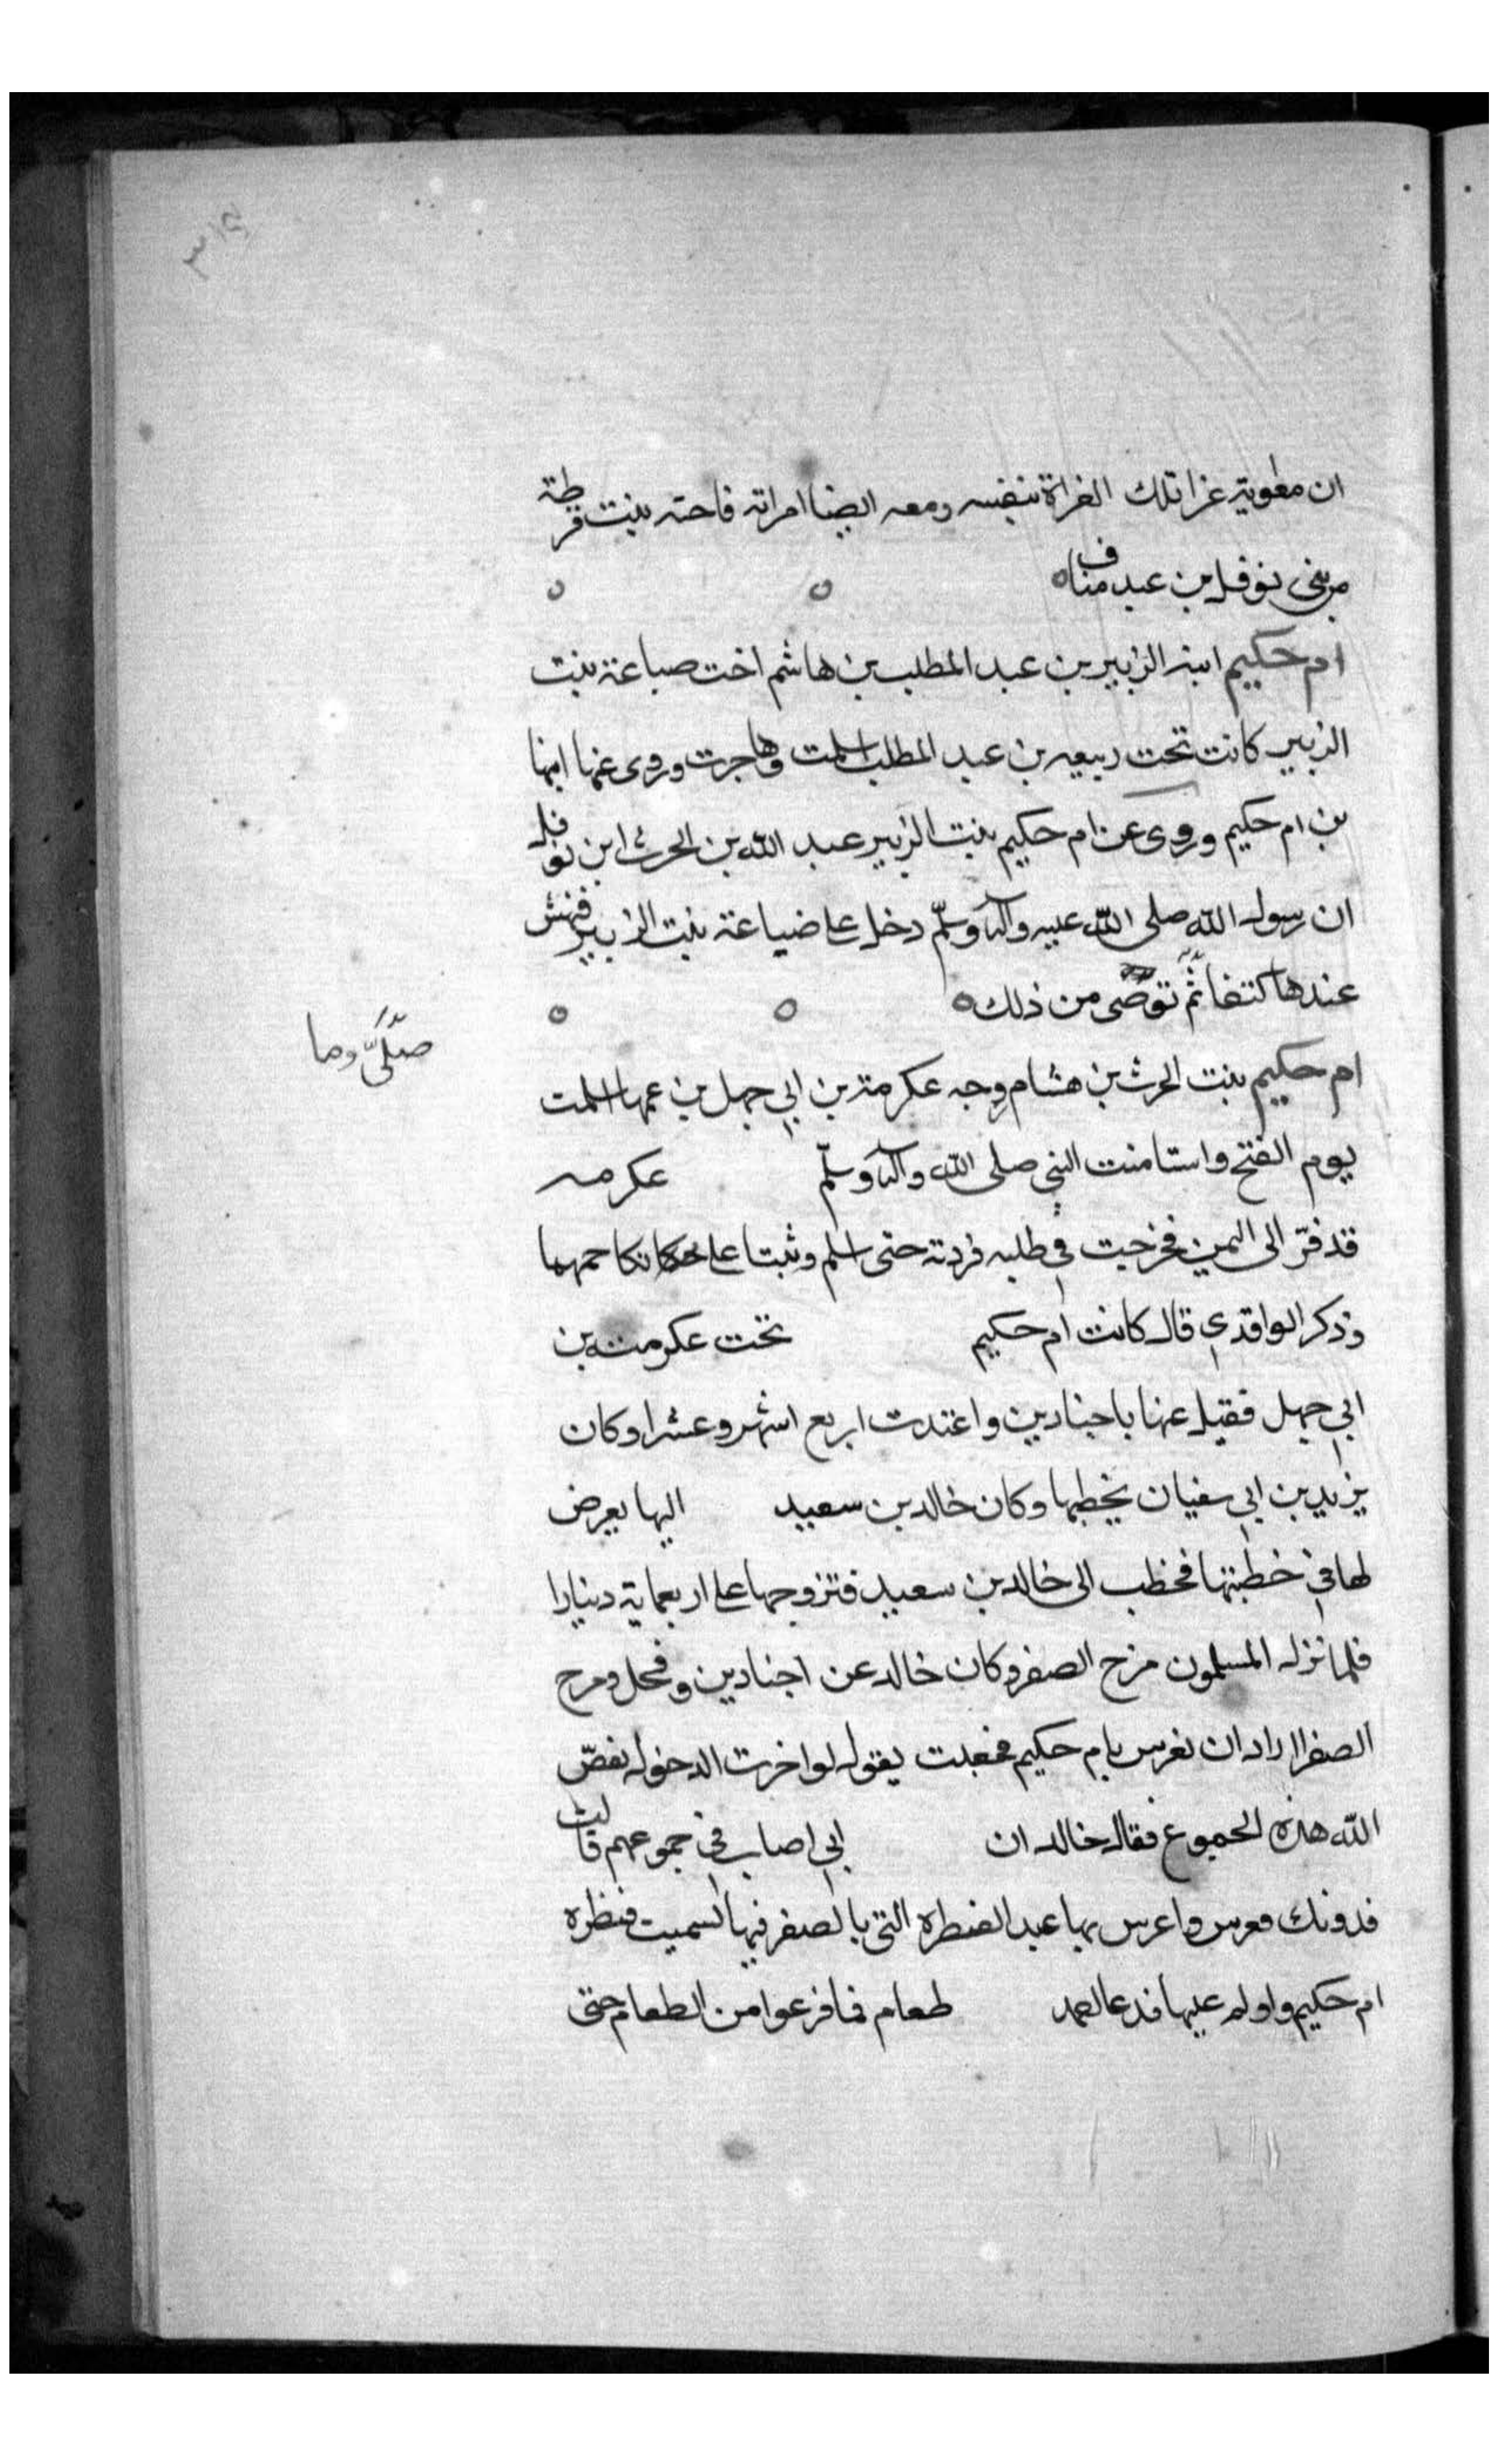 ٣١٤
ان معوية غزا تلك الغزاة بنفسه ومعه ايضا امراته فاحته بنت قرطة
من بنى نوفل بن عبد مناف
ام حكيم ابنة الزبير بن عبد المطلب بن هاشم اخت صباعة بنت
الزبير كانت تحت ربيعه بن عبد المطلب اسلمت وهاجرت وروى عنها ابنها
بن ام حكيم وروى عن ام حكيم بنت الزبير عبد الله بن الحرث ابن نوفل
ان رسول الله صلى الله عليه وآله وسلّم دخل على ضباعة بنت الزبير فنهش
عندها كتفا ثم توضى من ذلك
صلّى وما
ام حكيم بنت الحرث بن هشام زوجه عكرمة بن ابي جهل بن عمها اسلمت
يوم الفتح واستامنت النبي صلى الله وآله وسلّم عكرمه
قد فرّ الى اليمن فخرجت في طلبه فردته حتى اسلم وثبتا على نكاحهما
وذكر الواقدي قال كانت ام حكيم تحت عكرمة بن
ابي جهل فقيل عنها باجنادين واعتدت اربع اشهر وعشرا وكان
يزيد بن ابي سفيان يخطبها وكان خالد بن سعيد اليها يعرض
لها في خطبتها فخطب الى خالد بن سعيد فتزوجها على اربعماية دينارا
فلما نزل المسلمون مرج الصفر وكان خالد عن اجنادين وفحل ومرج
الصفر اراد ان يعرس بام حكيم فجعلت يقول لو اخرت الدخول يفضّ
الله هذه الجموع فقال خالد ان ابي اصاب في جموعهم قالت
فدونك فعرس واعرس بها عبد القنطره التي بالصفر فبها سميت قنظره
ام حكيم واولم عليها فدعا طعام فما فزعوا من الطعام حتى